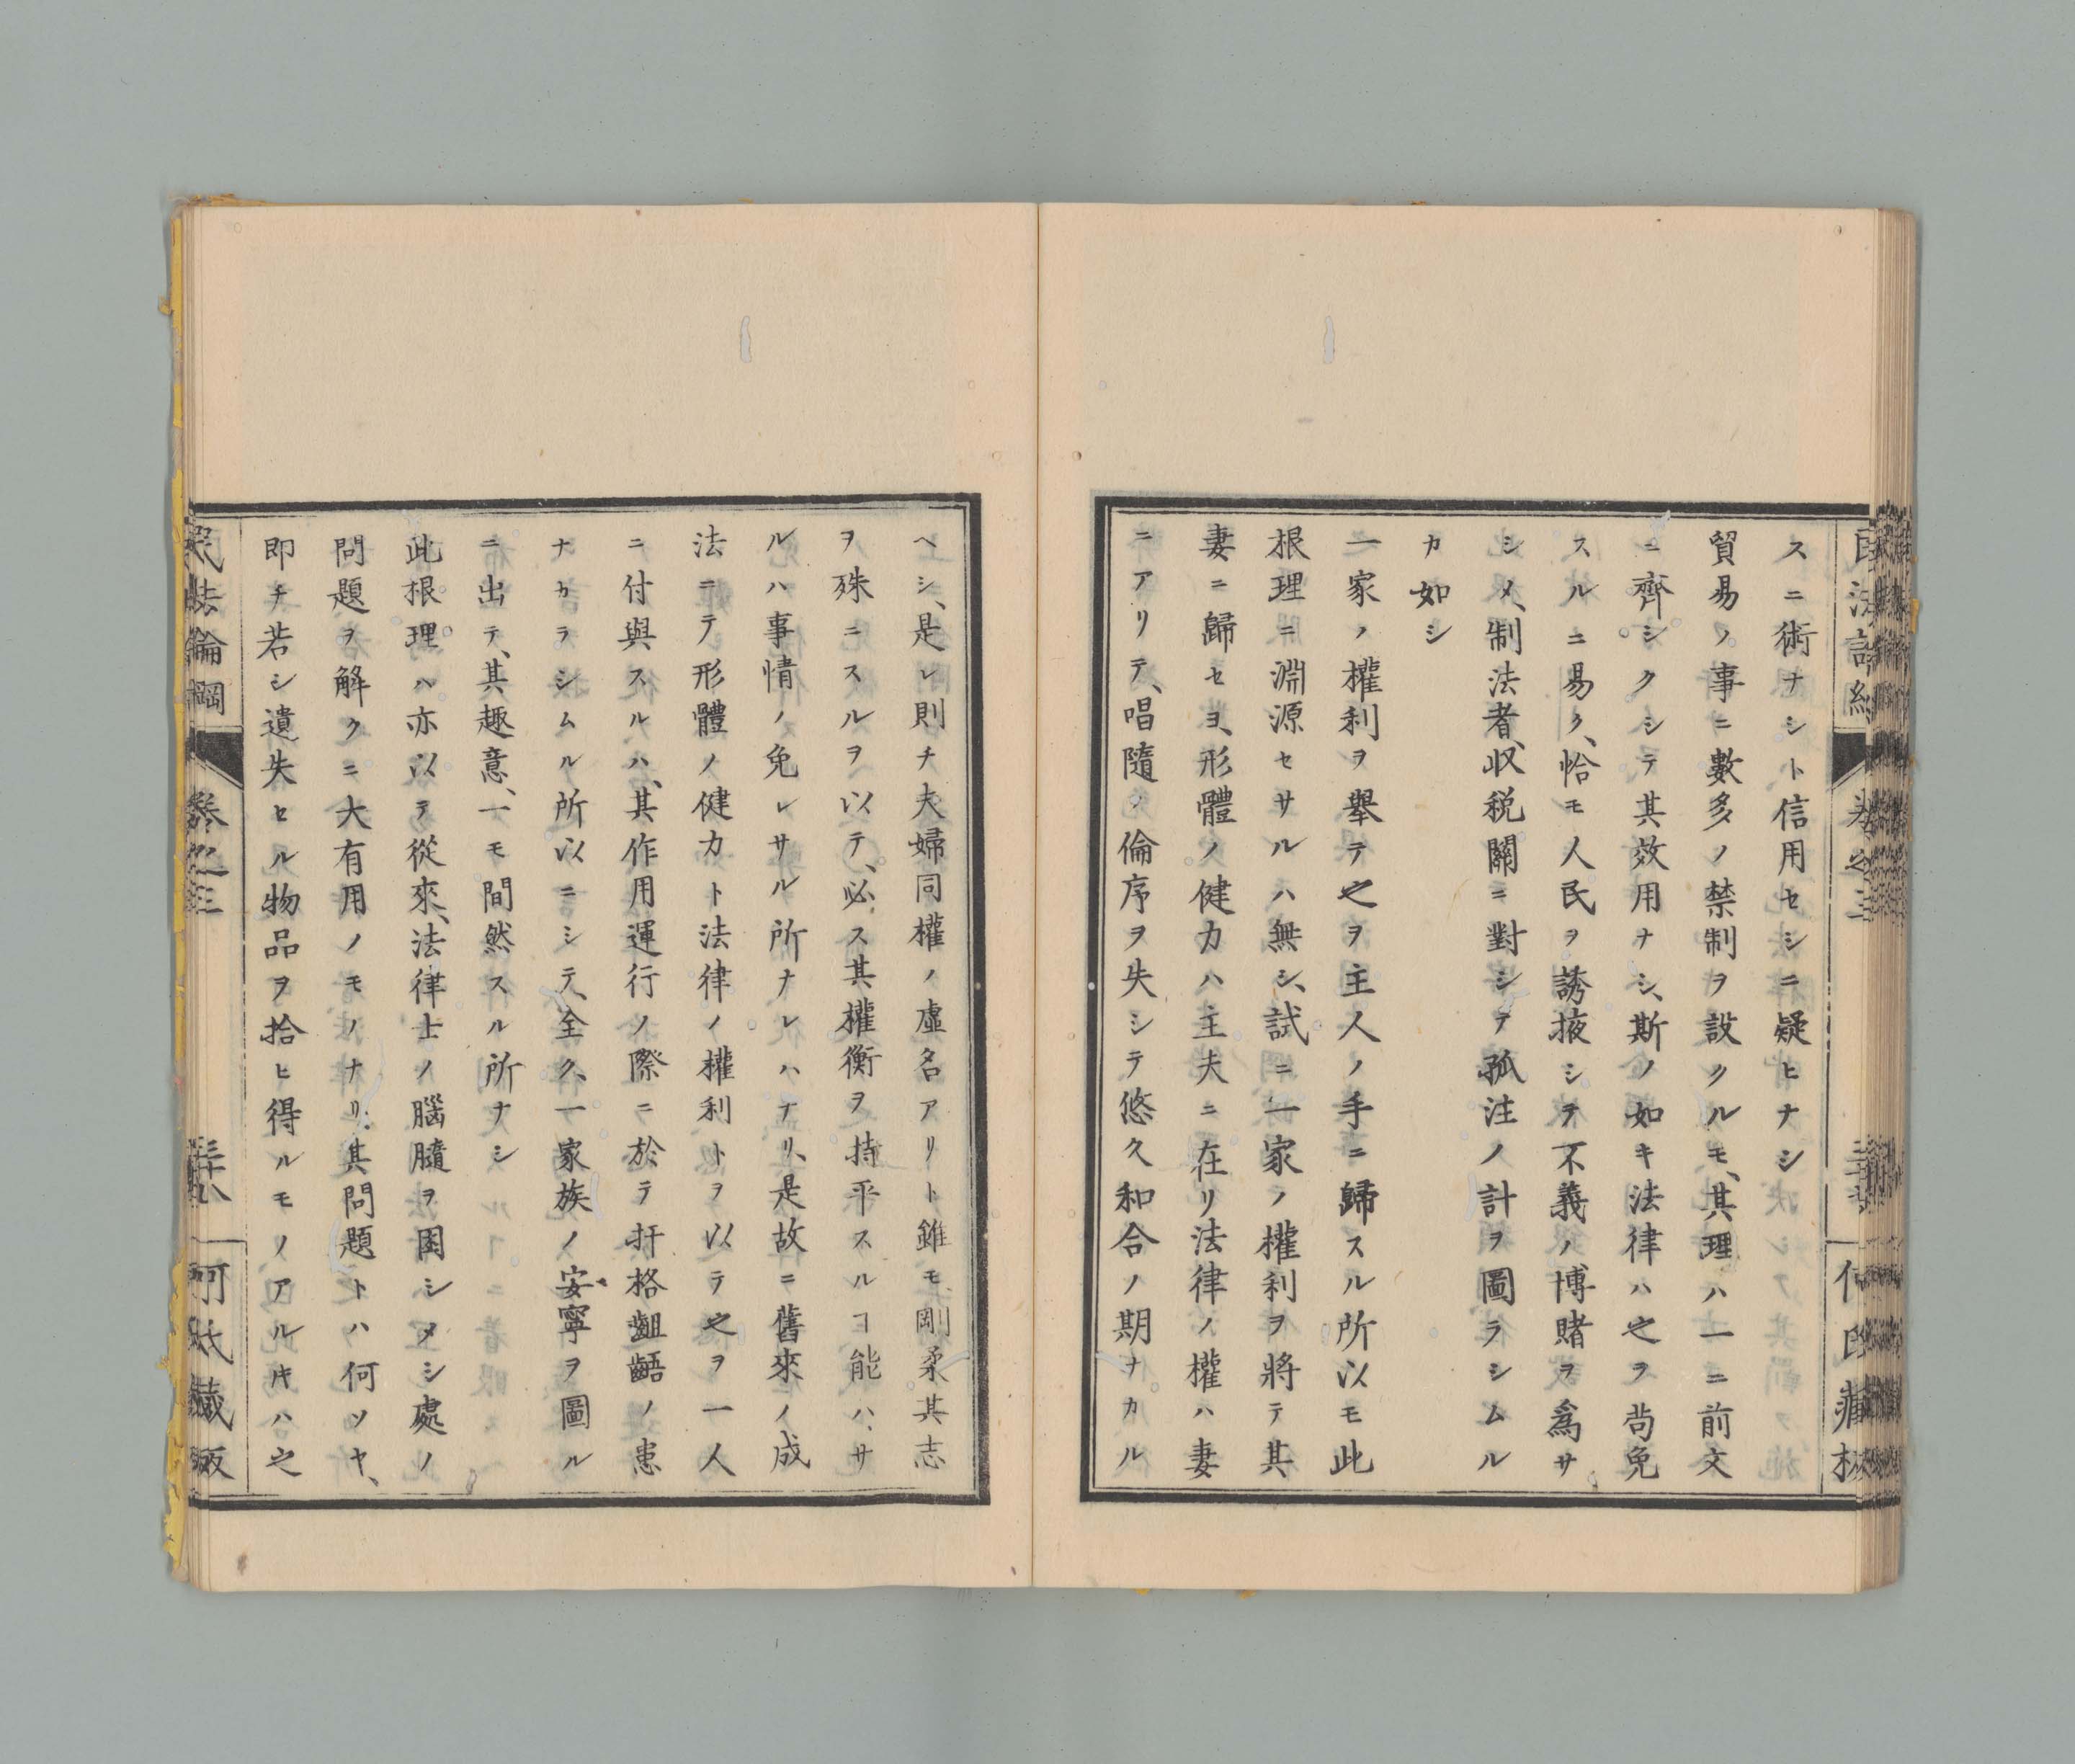 スニ術ナシト信用セシニ疑ヒナシ
貿易ノ事ニ數多ノ禁制ヲ設クルモ、其理ハ一ニ前文
ニ齊シクシテ其效用ナシ、斯ノ如キ法律ハ之ヲ尙免
スルニ易ク、恰モ人民ヲ誘掖シテ不義ノ博賭ヲ爲サ
シメ、制法者、収税關ニ對シテ孤注ノ計ヲ圖ラシムル
カ如シ
一家ノ權利ヲ擧テ之ヲ主人ノ手ニ歸スル所以モ此
根理ニ淵源セサルハ無シ、試ニ一家ノ權利ヲ將テ其
妻ニ歸セヨ、形體ノ健力ハ主夫ニ在リ法律ノ權ハ妻
ニアリテ、唱隨ノ倫序ヲ失シテ悠久和合ノ期ナカル
ヘシ、是レ則チ夫婦同權ノ虛名アリト雖モ、剛柔其志
ヲ殊ニスルヲ以テ、必ス其權衡ヲ持平スルヿ能ハサ
ルハ事情ノ免レサル所ナレハナリ、是故ニ舊來ノ成
法ニテ形體ノ健力ト法律ノ權利トヲ以テ之ヲ一人
ニ付與スルハ、其作用運行ノ際ニ於テ扞格齟齬ノ患
ナカラシムル所以ニシテ、全ク一家族ノ安寧ヲ圖ル
ニ出テ、其趣意、一モ間然スル所ナシ
此根理ハ亦以テ從來、法律士ノ腦髓ヲ困シメシ處ノ
問題ヲ解クニ大有用ノモノナリ、其問題トハ何ソヤ、
即チ若シ遺失セル物品ヲ拾ヒ得ルモノアル片ハ之
民法論綱 卷之三 何氏藏版